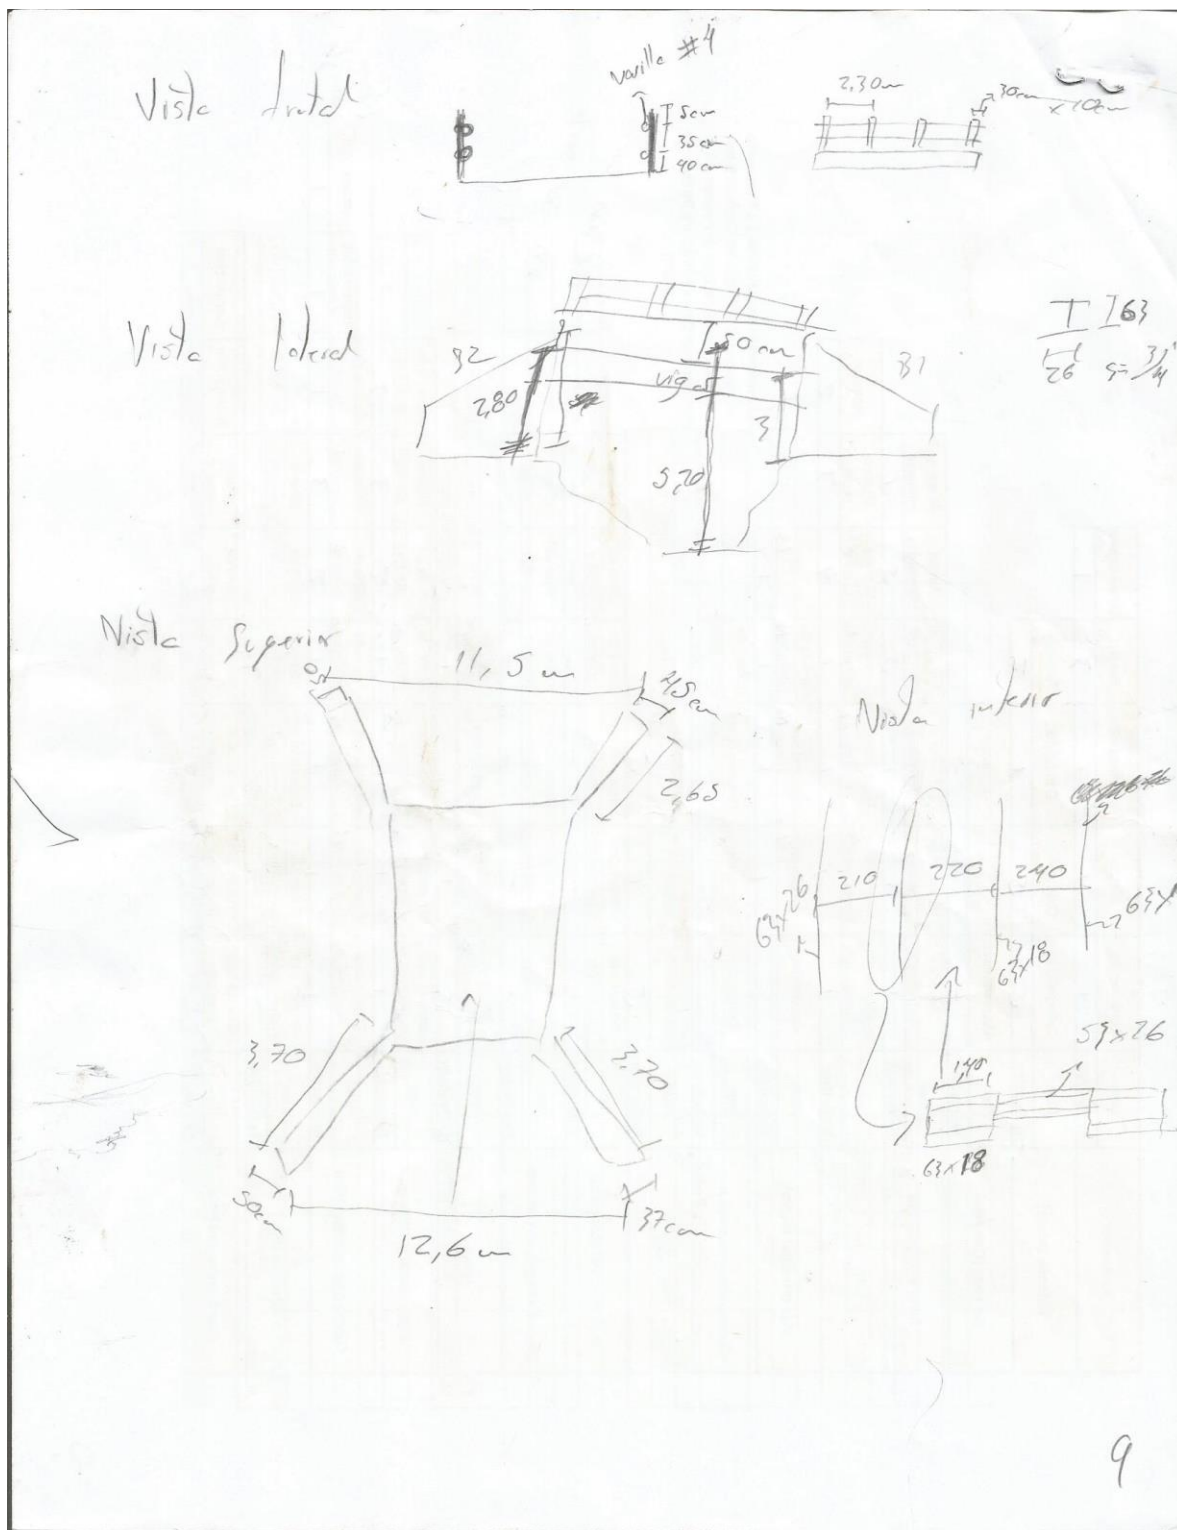 Vista frntal
varilla #4
5cm
35cm
40cm
2,30m
30cm
x 10cm
Vista lateral
B2
2,80
50 cm
viga
3
5,20
B1
I 63
26 g= 3/4"
Vista Superior
11,5 m
45cm
2,65
3,70
3,70
50cm
37cm
12,6 m
Vista inferior
210
220
240
63x26
63x18
63x
59x26
1,40
63x18
9